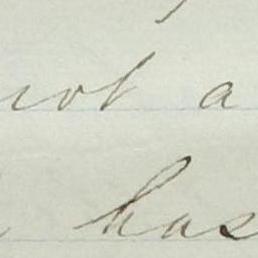 not a
has